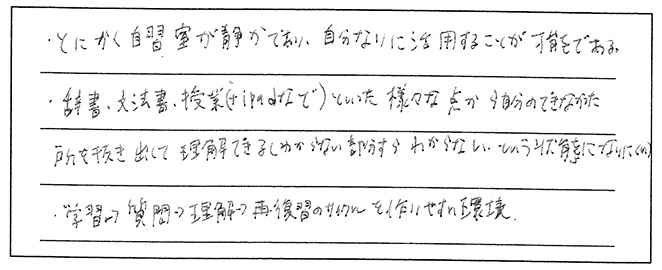 ・とにかく自習室が静かであり、自分なりに活用することが可能である。
・辞書、文法書、授業(+ipadなど)といった様々な点から自分のできなかった
所を抜き出して理解できるしわからない部分すらわからない、という状態になりにくい
・学習→質問→理解→再復習のサイクルを作りやすい環境.